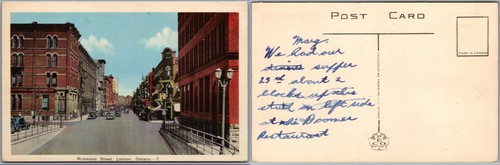 Richmond Street, London, Ontario.—7
POST CARD
Marg.
We had our
supper
23rd about 2
blocks up this
street on left side
at the Boomer
Restaurant